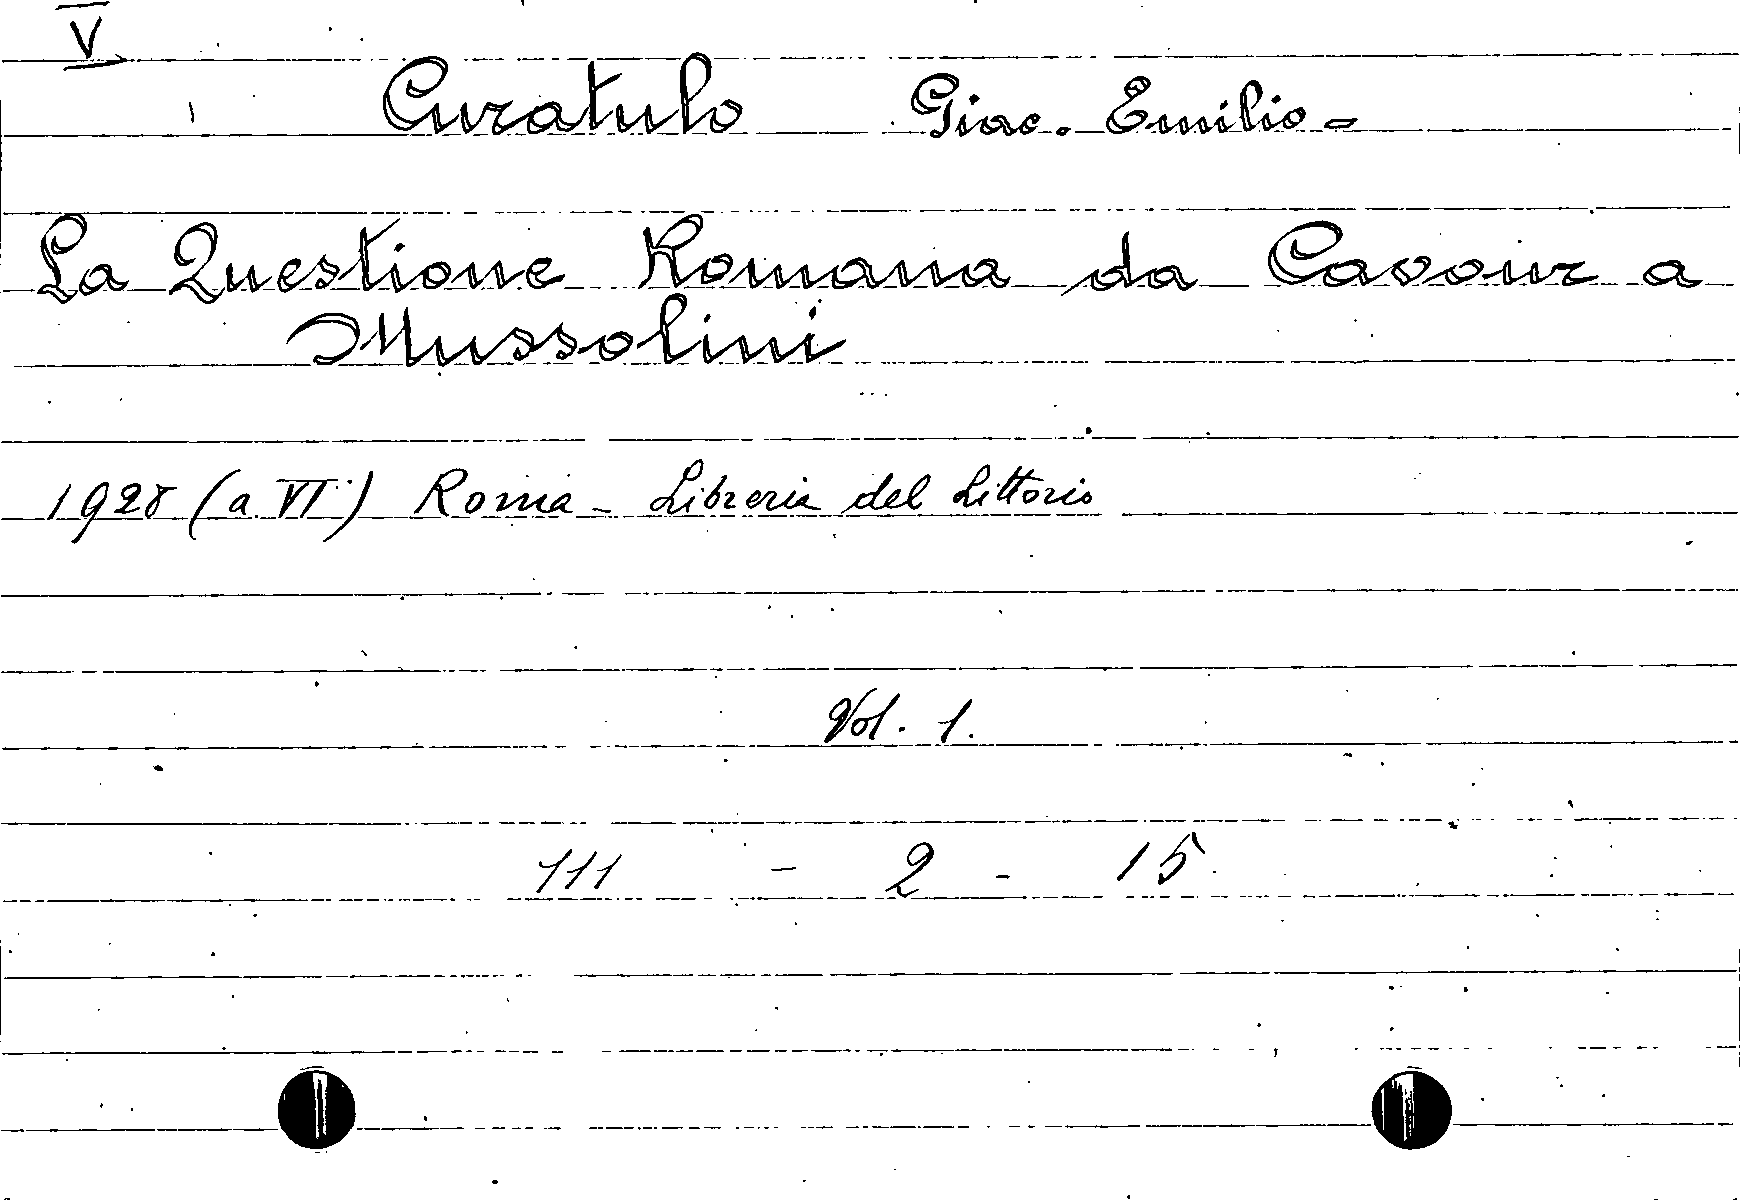 V
Curatulo Giac. Emilio -
La Questione Romana da Cavour a
Mussolini
1928 (a VI) Roma - Libreria del Littorio
Vol. 1.
111 - 2 - 15